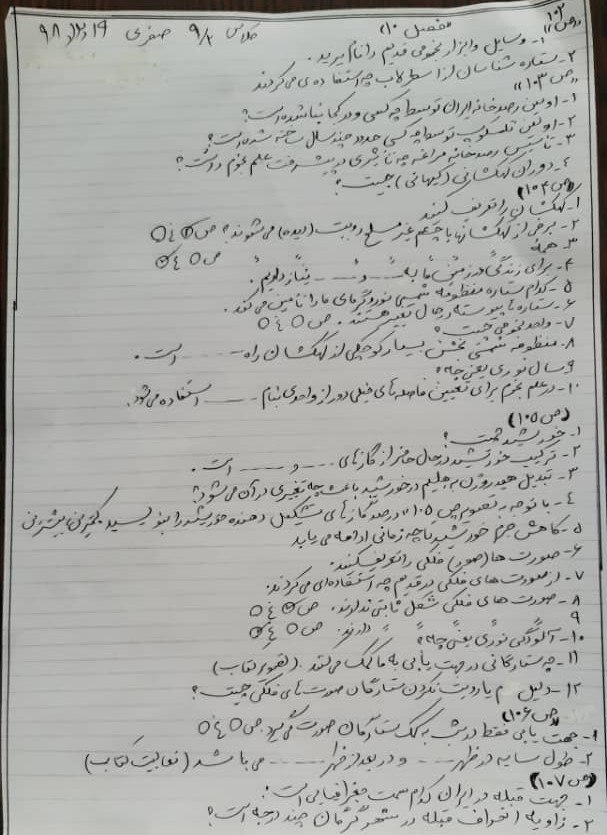 فصل ۱۰ کلاس ۹/۲ صفری ۹۸
(ص ۱۰۲)
۱- وسایل و ابزار نجومی قدیم را نام ببرید.
۲- ستاره شناسان از اسطرلاب چه استفاده ی می کردند
(ص ۱۰۳)
۱- اولین رصدخانه ایران توسط چه کسی و در کجا بنا شده است؟
۲- اولین تلسکوپ توسط چه کسی حدود چند سال ساخته شده است؟
۳- تأسیس رصدخانه مراغه چه تأثیری در پیشرفت علم نجوم داشت؟
۴- دوران کهکشانی (کیهانی) چیست؟
(ص ۱۰۴)
۱- کهکشان را تعریف کنید
۲- برخی از کهکشانها با چشم غیر مسلح رویت (دیده) می شوند؟ ص غ
۳- همه ص غ
۴- برای زندگی در زمین ما به --- و --- نیاز داریم.
۵- کدام ستاره منظومه شمسی نور و گرمای ما را تأمین می کند.
۶- ستاره ها پیوسته در حال تغییر هستند. ص غ
۷- واحد نجومی چیست؟
۸- منظومه شمسی بخش بسیار کوچکی از کهکشان راه ---- است.
۹- سال نوری یعنی چه؟
۱۰- در علم نجوم برای تعیین فاصله های خیلی دور از واحدی بنام ---- استفاده می شود.
(ص ۱۰۵)
۱- خورشید چیست؟
۲- ترکیب خورشید در حال حاضر از گازهای ---- و ---- است.
۳- تبدیل هیدروژن به هلیم در خورشید باعث چه تغییری در آن می شود؟
۴- با توجه به تصویر ص ۱۰۵ درصد گازهای تشکیل دهنده خورشید را بنویسید
۵- کاهش جرم خورشید تا چه زمانی ادامه می یابد
۶- صورت ها (صور) فلکی را تعریف کنید.
۷- از صورت های فلکی در قدیم چه استفاده ای می کردند.
۸- صورت های فلکی شکل ثابتی ندارند. ص غ
۹ دارند. ص غ
۱۰- آلودگی نوری یعنی چه؟
۱۱- چه ستارگانی در جهت یابی به ما کمک می کنند. (تصویر کتاب)
۱۲- دلیل رویت نکردن ستارگان صورت های فلکی چیست؟
(ص ۱۰۶)
۱- جهت یابی فقط در شب به کمک ستارگان صورت می گیرد. ص غ
۲- طول سایه در ظهر ---- و در بعد از ظهر ---- می باشد (فعالیت کتاب)
(ص ۱۰۷)
۱- جهت قبله در ایران کدام سمت جغرافیایی است؟
۲- زاویه انحراف قبله در شهر گرگان چند درجه است؟